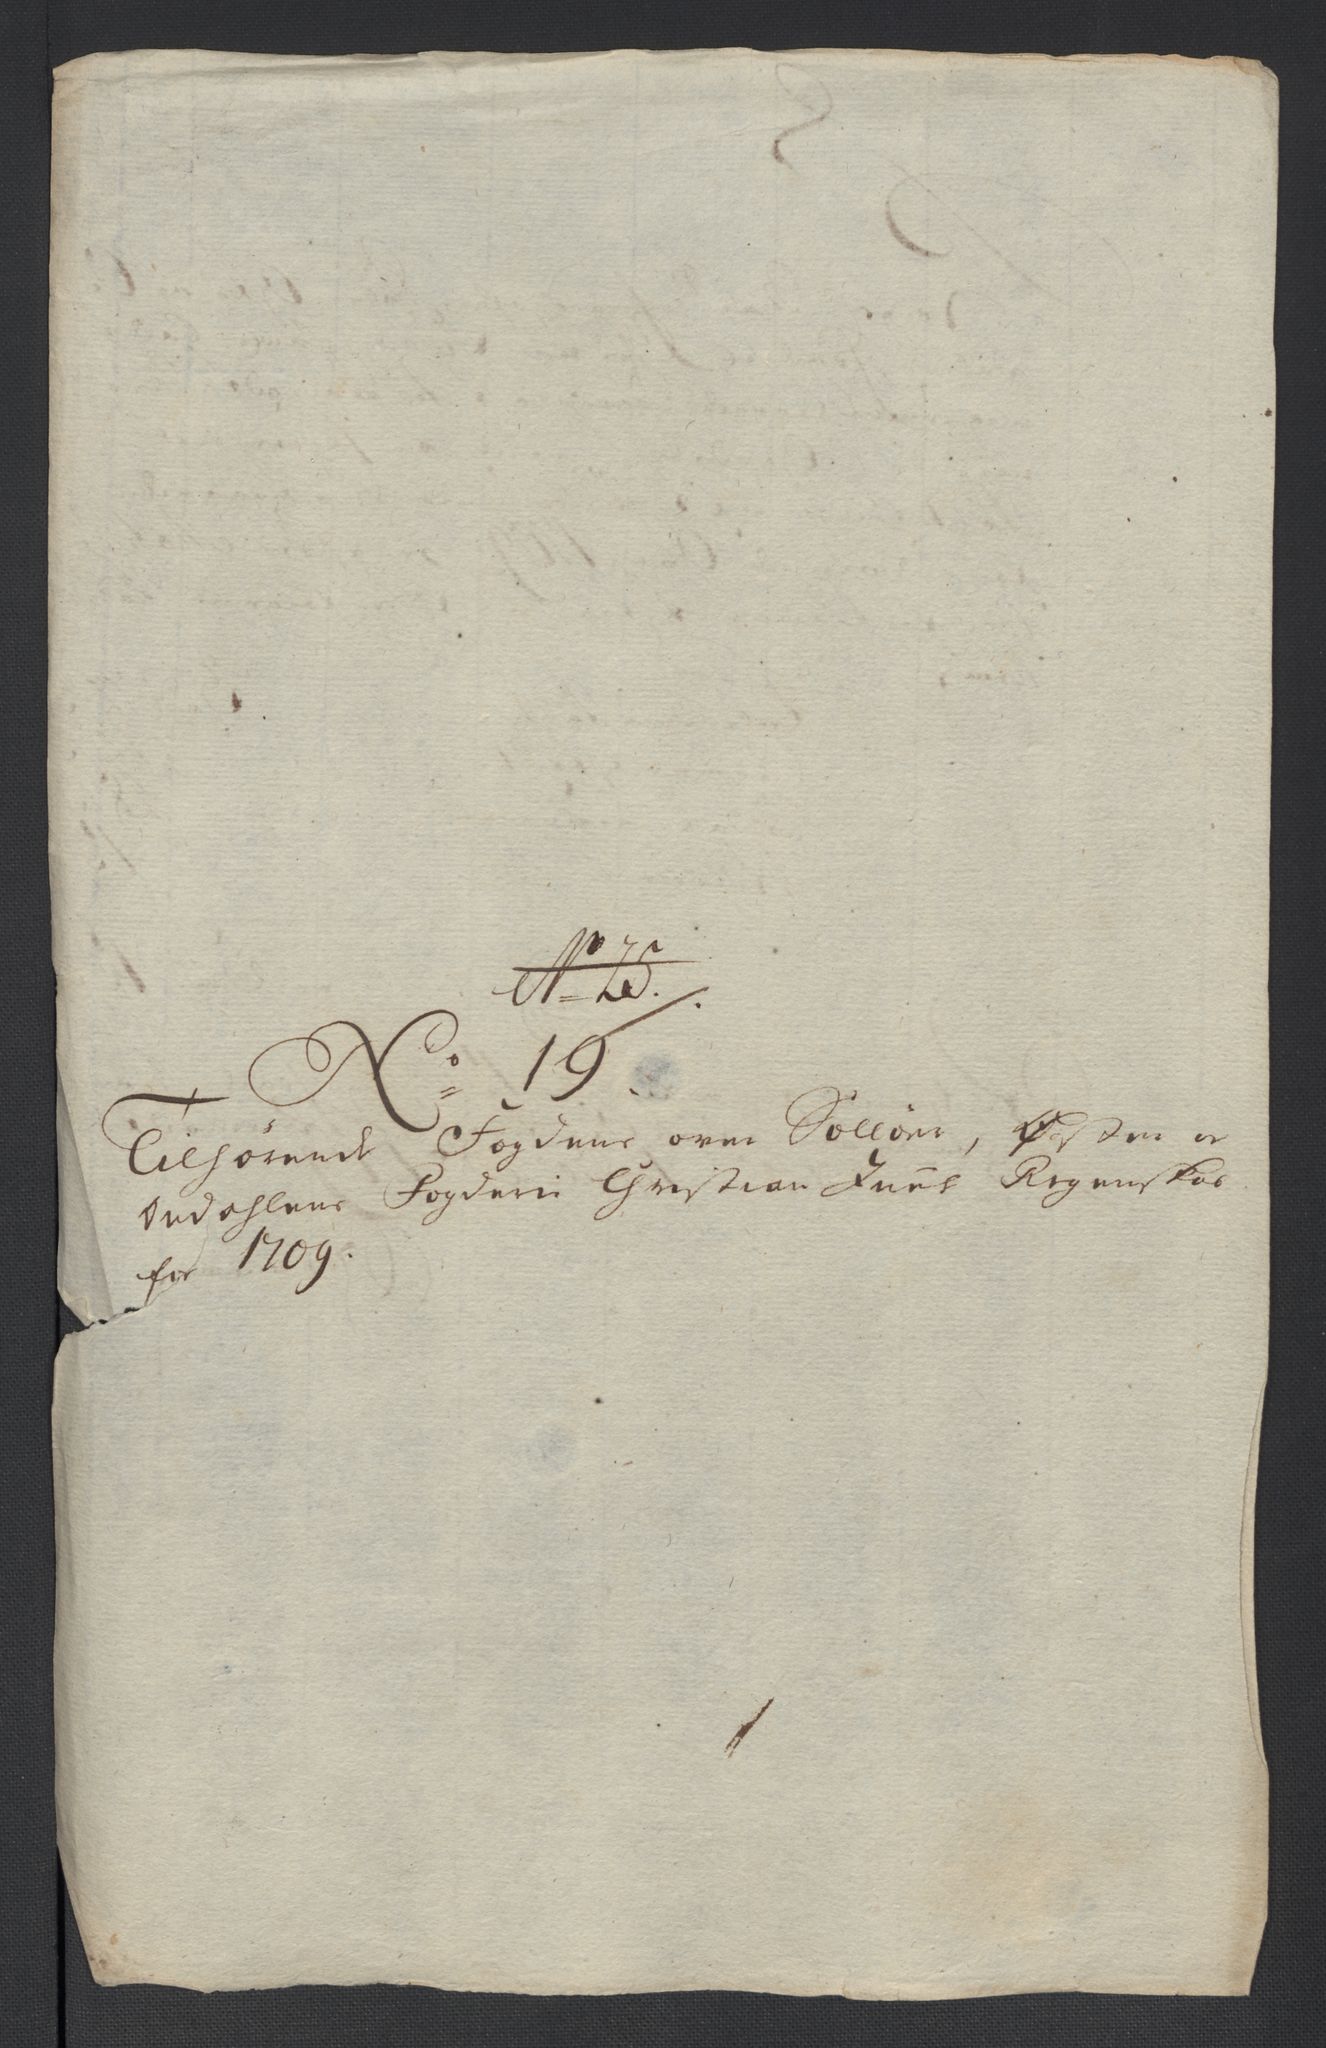 No 25.
No 19.
Tilhørende Fogdens over Solløer, Østen og
Oudahlens Fogderi Christian Juuel Regenskab
for 1709.